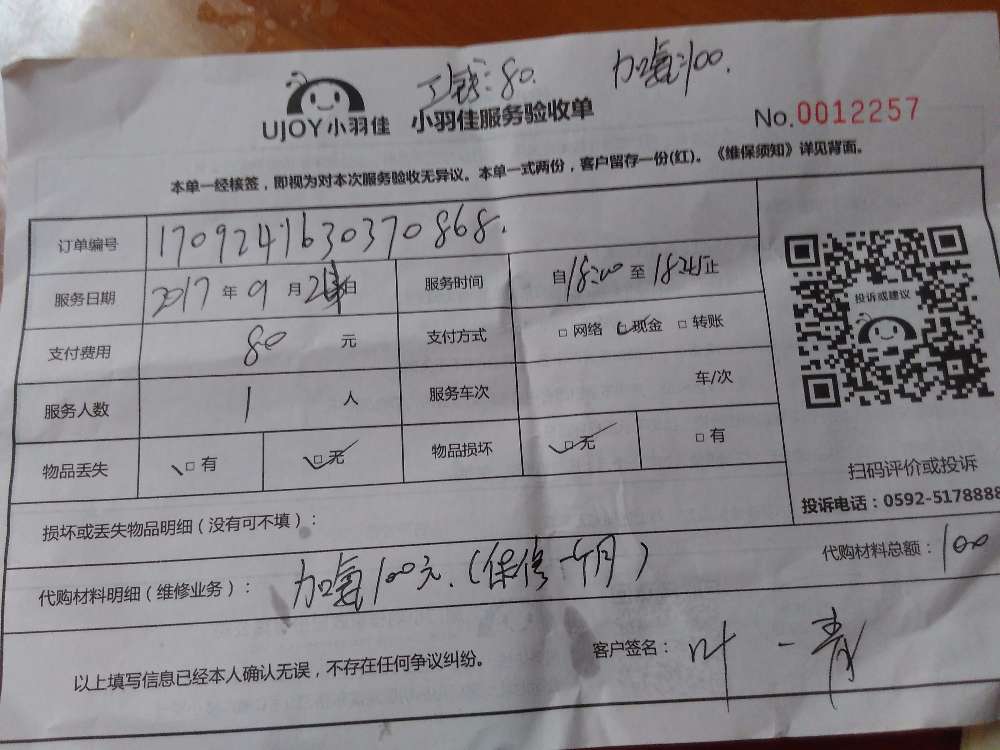 工钱:80. 加氨:100.
UJOY小羽佳 小羽佳服务验收单 No.0012257
本单一经核签，即视为对本次服务验收无异议。本单一式两份，客户留存一份(红)。《维保须知》详见背面。
订单编号 1709241630370868.
服务日期 2017年9月2日 服务时间 自18:00至18:25止
支付费用 80 元 支付方式 □网络 □现金 □转账
投诉或建议
服务人数 1 人 服务车次 车/次
物品丢失 □有 □无 物品损坏 □无 □有
扫码评价或投诉
投诉电话：0592-5178888
损坏或丢失物品明细（没有可不填）：
代购材料明细（维修业务）： 加氨100元.(保修一个月) 代购材料总额： 100
以上填写信息已经本人确认无误，不存在任何争议纠纷。 客户签名： 叶一青